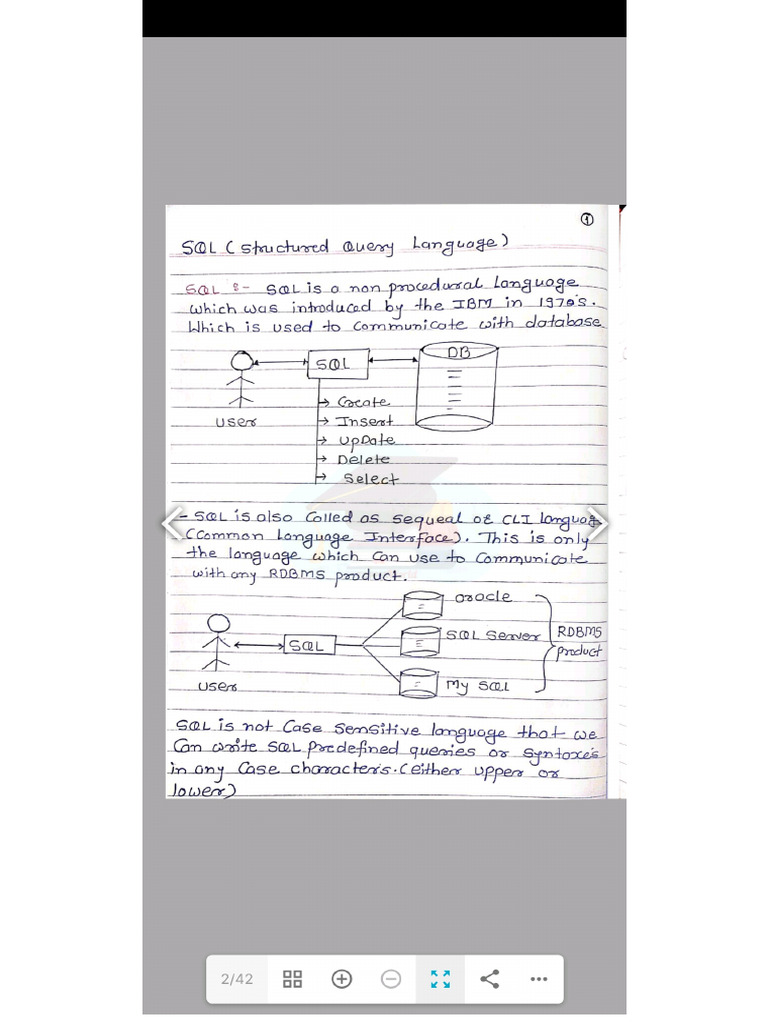 ①
SQL (Structured Query Language)
SQL :- SQL is a non procedural language
which was introduced by the IBM in 1970's.
Which is used to communicate with database
SQL
DB
User
→ Create
→ Insert
→ UpDate
→ Delete
→ Select
- SQL is also Called as sequeal or CLI languag
(Common Language Interface). This is only
the language which can use to Communicate
with any RDBMS product.
Oracle
SQL
SQL Server
RDBMS
product
User
My SQL
SQL is not Case Sensitive language that we
Can write SQL predefined queries or Syntaxes
in any Case characters.(either upper or
lower)
2/42